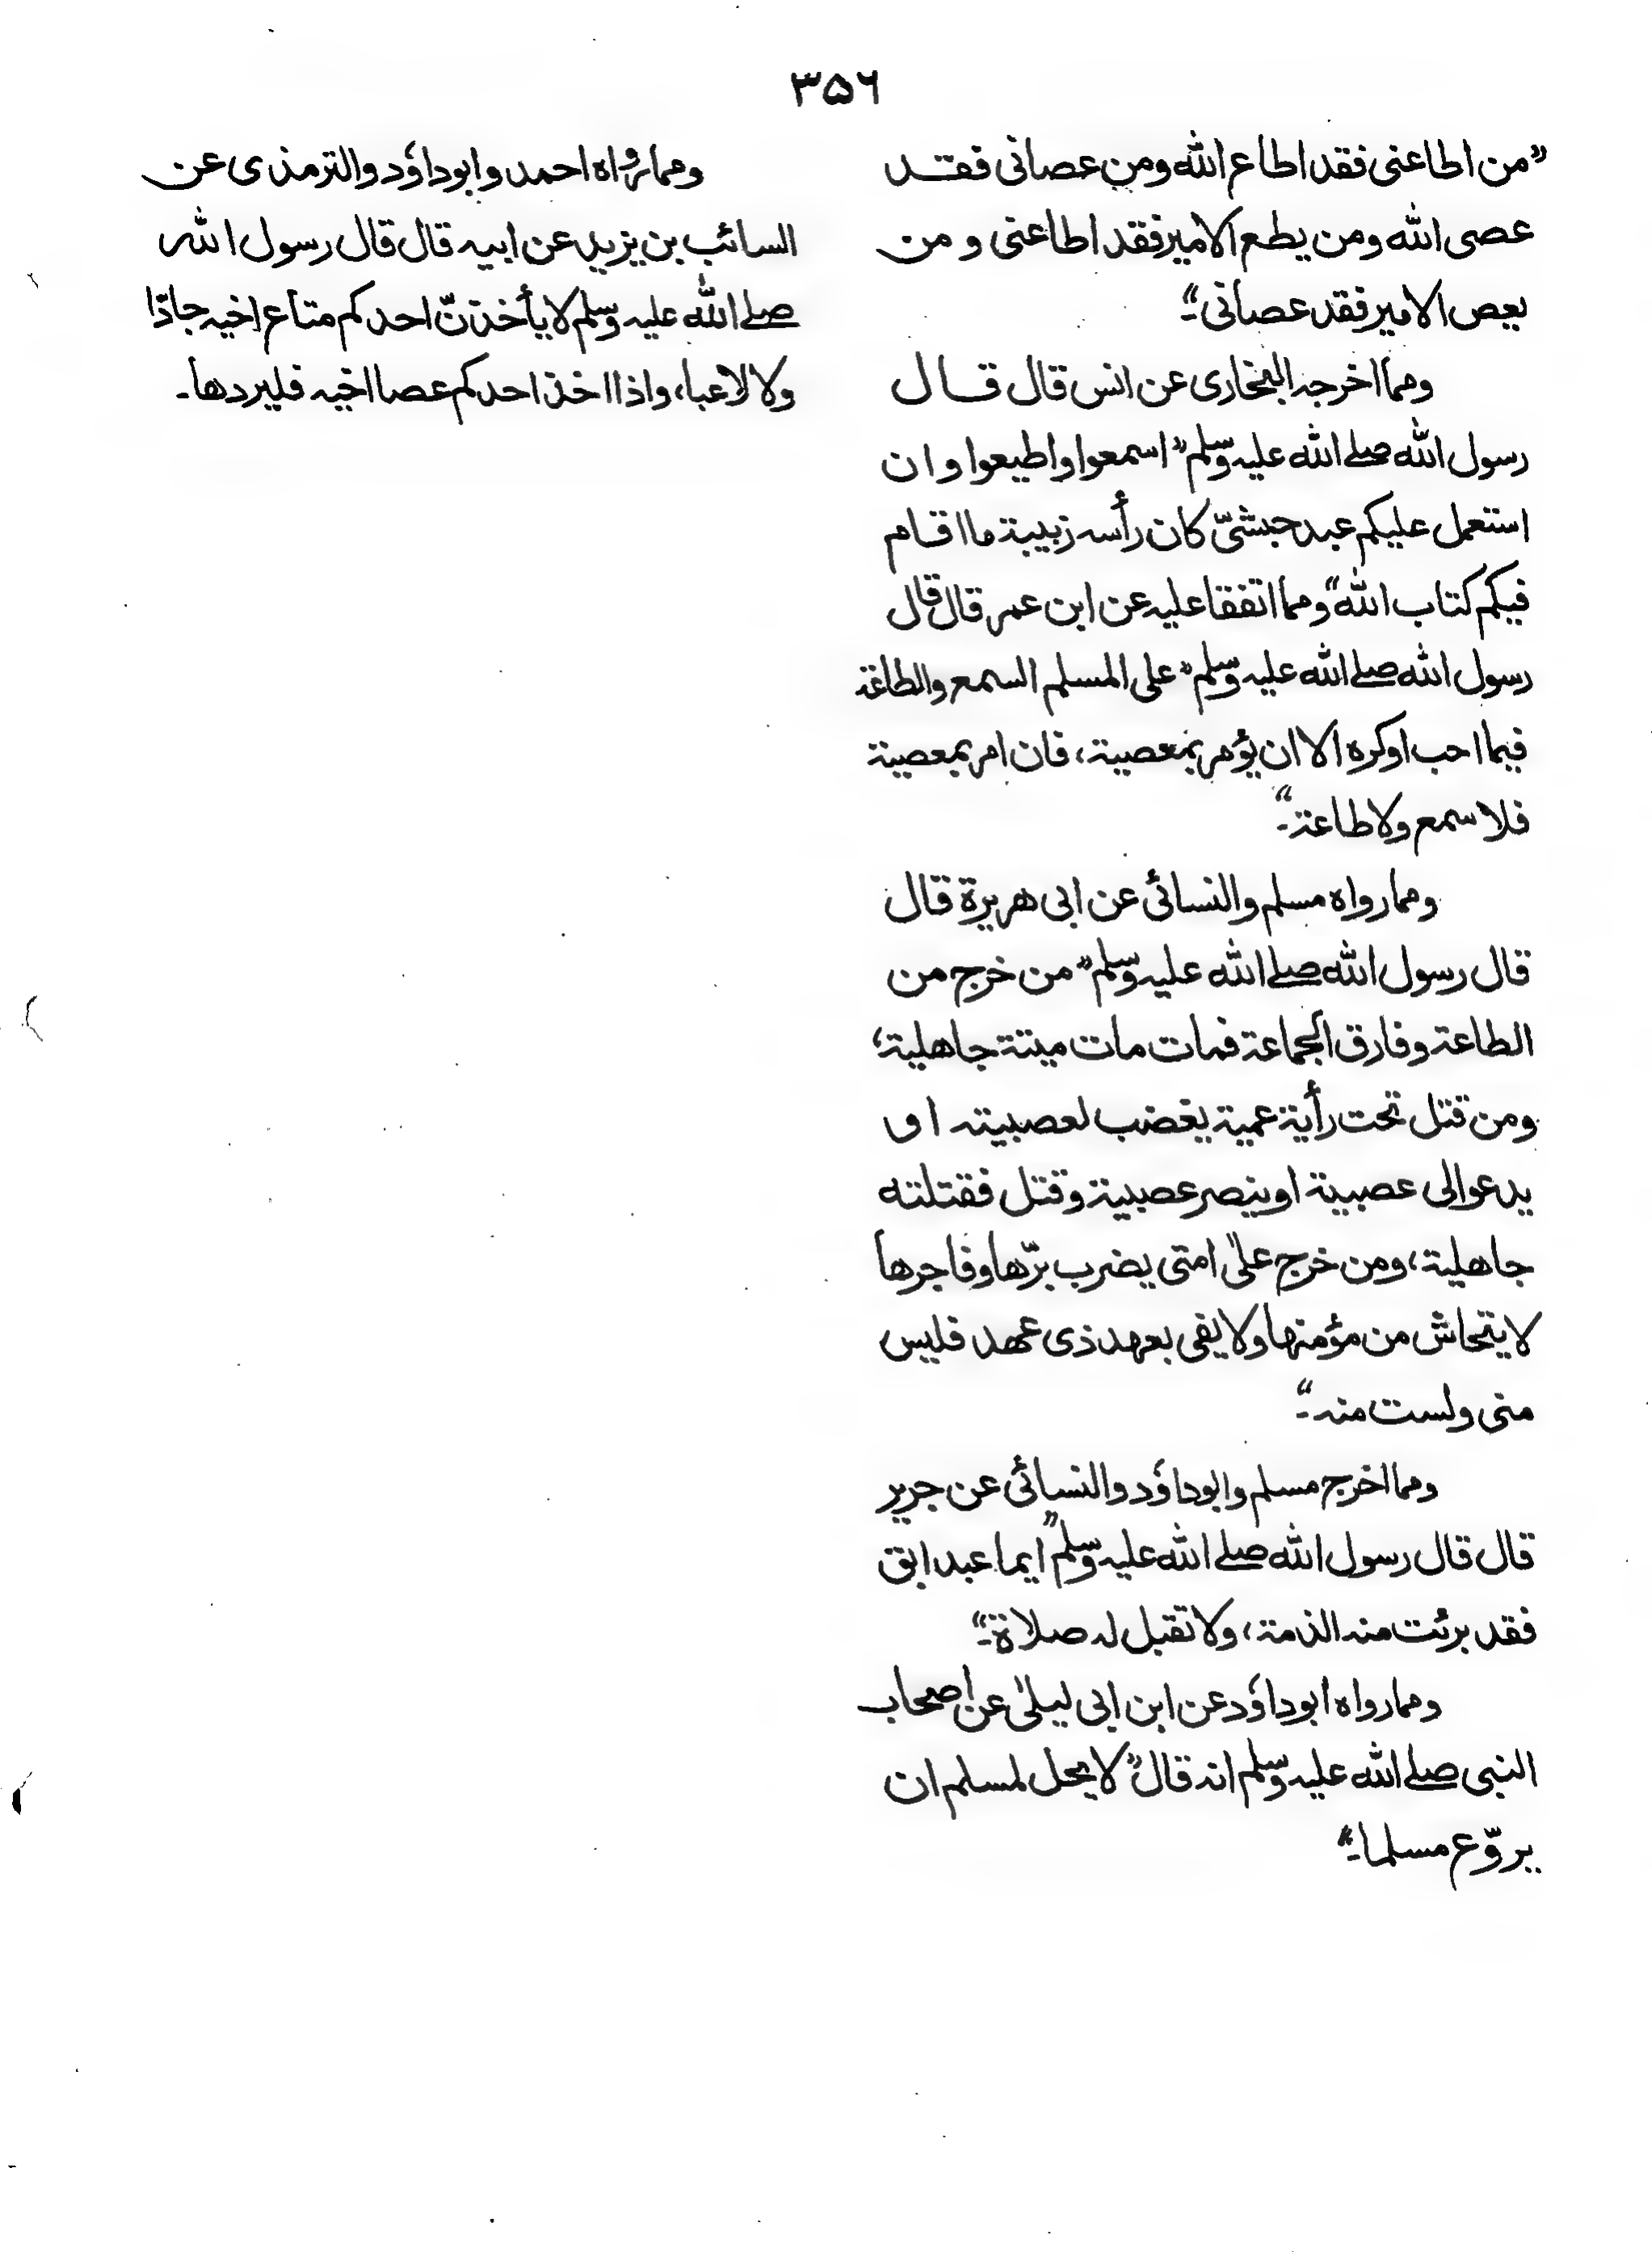 ۳۵۶
”من اطاعنى فقد اطاع الله ومن عصانى فقد
عصى الله ومن يطع الامير فقد اطاعنى و من
يعص الامير فقد عصانى“۔
ومما اخرجه البخارى عن انس قال قال
رسول الله صلے الله عليه وسلم ”اسمعوا واطيعوا و ان
استعمل عليكم عبد حبشىّ كان رأسه زبيبة ما اقام
فيكم كتاب الله“ ومما اتفقا عليه عن ابن عمر قال قال
رسول الله صلے الله عليه وسلم ”على المسلم السمع والطاعة
فيما احب او كره الا ان يؤمر بمعصية، فان امر بمعصية
فلا سمع ولا طاعة“۔
ومما رواه مسلم والنسائى عن ابى هريرة قال
قال رسول الله صلے الله عليه وسلم ”من خرج من
الطاعة وفارق الجماعة فمات مات ميتة جاهلية،
ومن قتل تحت رأية عمية يغضب لعصبيته او
يدعو الى عصبية او ينصر عصبية وقتل فقتلته
جاهلية، ومن خرج علىٰ امتى يضرب برّها وفاجرها
لا يتحاش من مؤمنها ولا يفى بعهد ذى عهد فليس
منى ولست منه“۔
ومما اخرج مسلم وابوداؤد والنسائى عن جرير
قال قال رسول الله صلے الله عليه وسلم ”ايما عبد ابق
فقد برئت منه الذمة، ولا تقبل له صلاة“۔
ومما رواه ابوداؤد عن ابن ابى ليلىٰ عن اصحاب
النبى صلے الله عليه وسلم انه قال ”لا يحل لمسلم ان
يروّع مسلما“۔
ومما رواه احمد وابوداؤد والترمذى عن
السائب بن يزيد عن ابيه قال قال رسول الله
صلے الله عليه وسلم لا يأخذنّ احدكم متاع اخيه جادّا
ولا لاعبا، واذا اخذ احدكم عصا اخيه فليردها۔